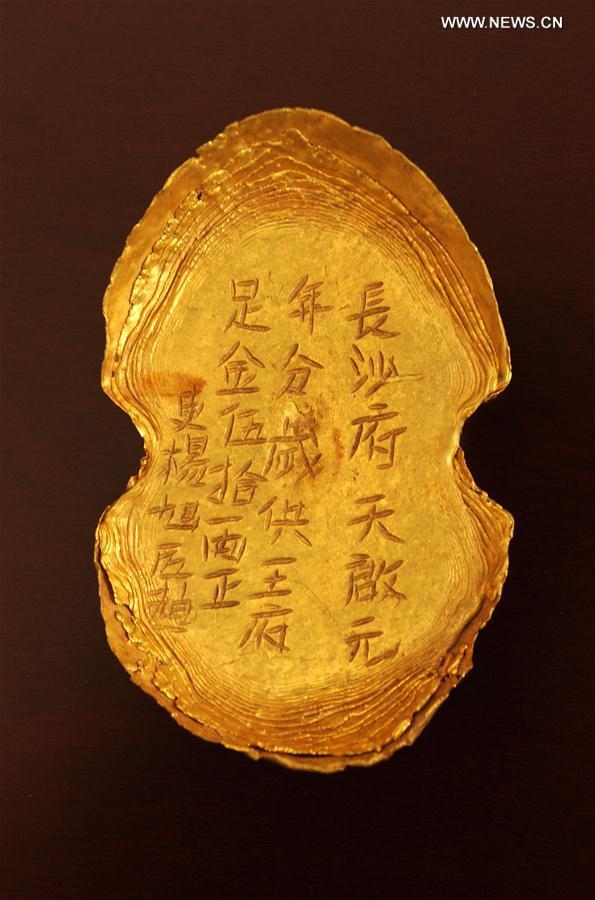 WWW.NEWS.CN
長沙府天啟元
年分歲供王府
足金伍拾両正
吏楊旭匠趙